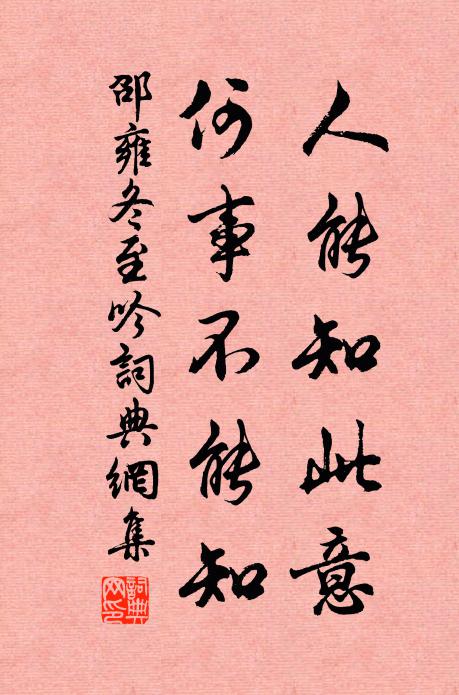 人能知此意
何事不能知
邵雍冬至吟詞典網集
詞典
網印